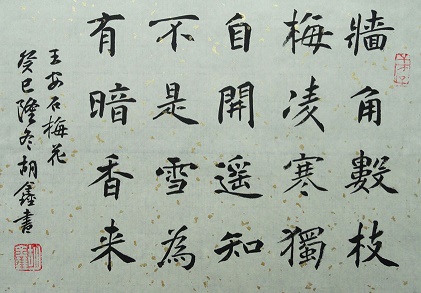 牆角數枝
梅凌寒獨
自開遥知
不是雪為
有暗香来
王安石梅花
癸巳隆冬胡鑫書